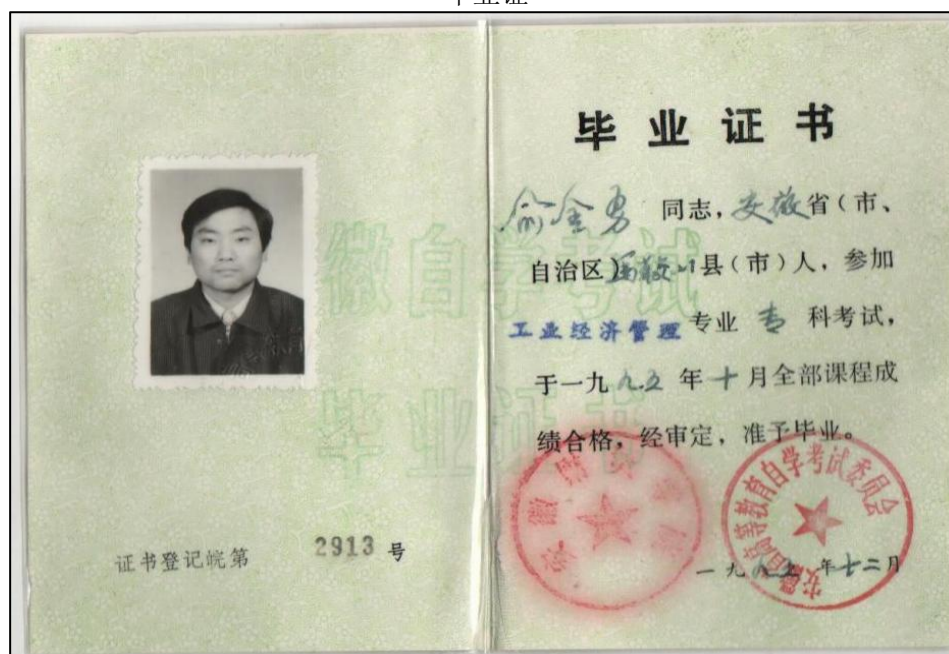 毕业证
徽自学考试
毕业证书
证书登记皖第 2913 号
毕业证书
俞金勇 同志，安徽省（市、
自治区）县（市）人，参加
工业经济管理专业 专 科考试，
于一九九五年十月全部课程成
绩合格，经审定，准予毕业。
安徽省高等教育自学考试委员会
一九 年十二月